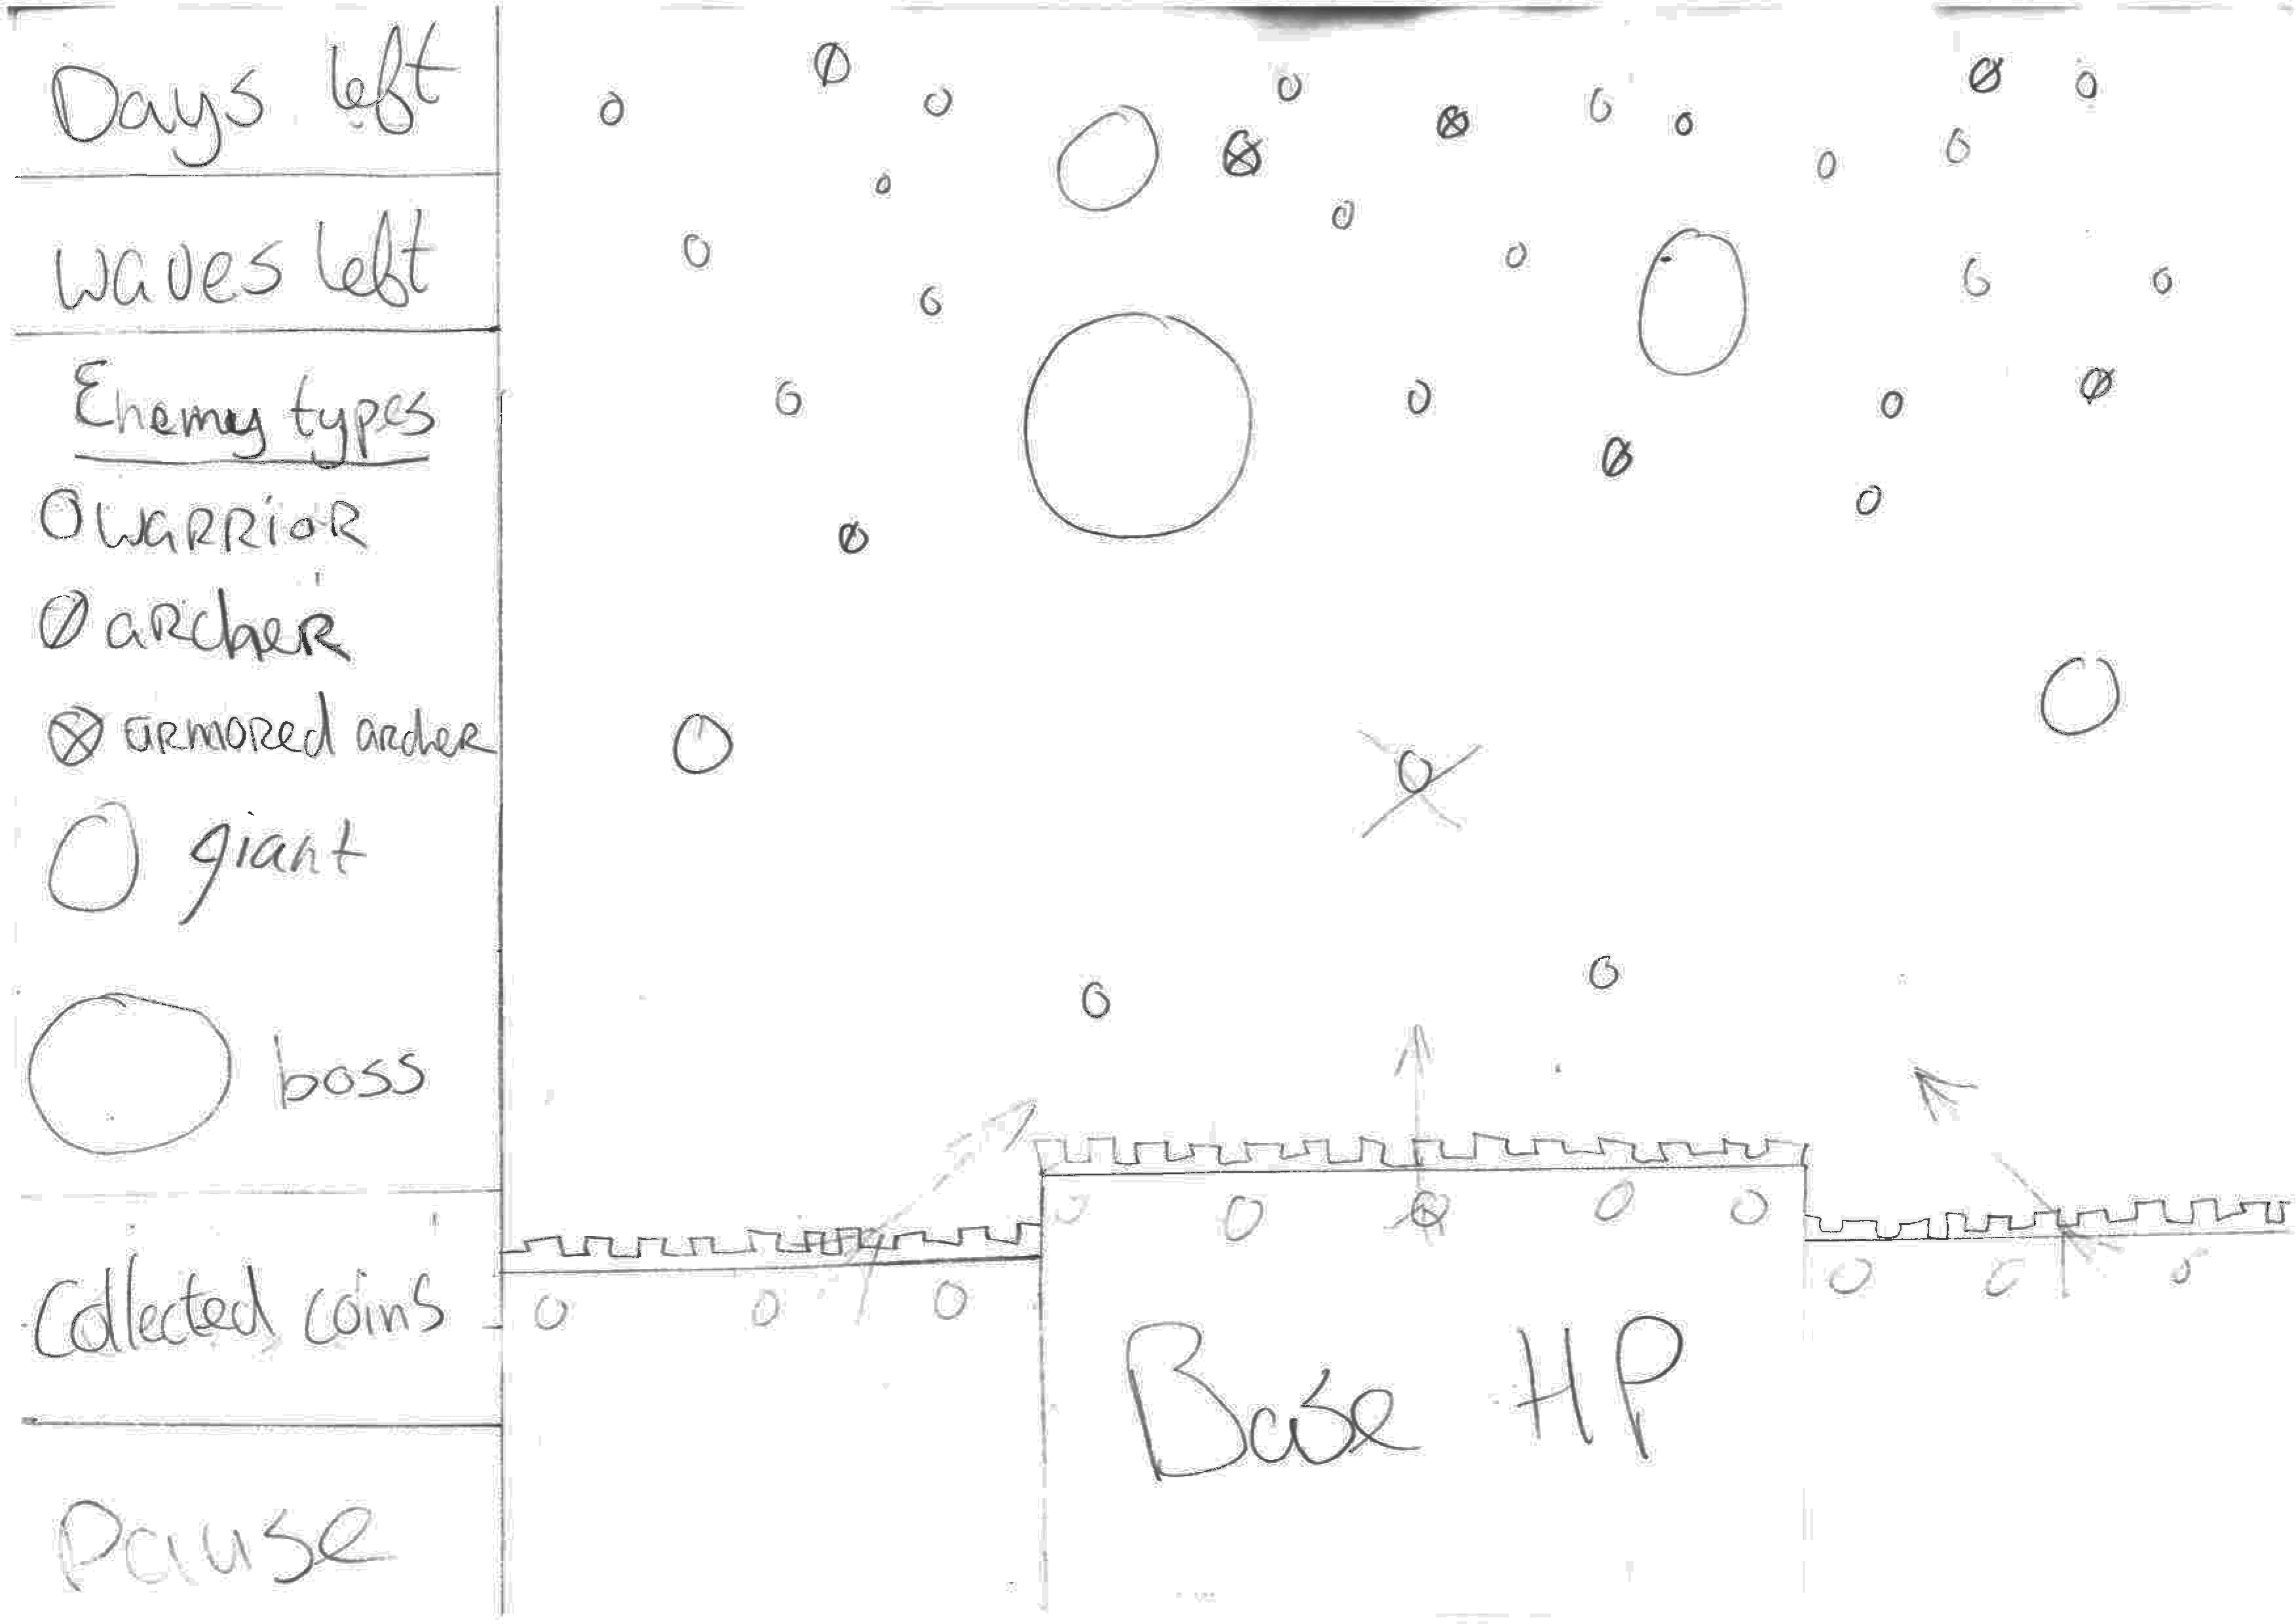 Days left
waves left
Enemy types
WARRioR
aRcheR
aRmoRed archeR
giant
boss
Collected coins
Pause
Base HP